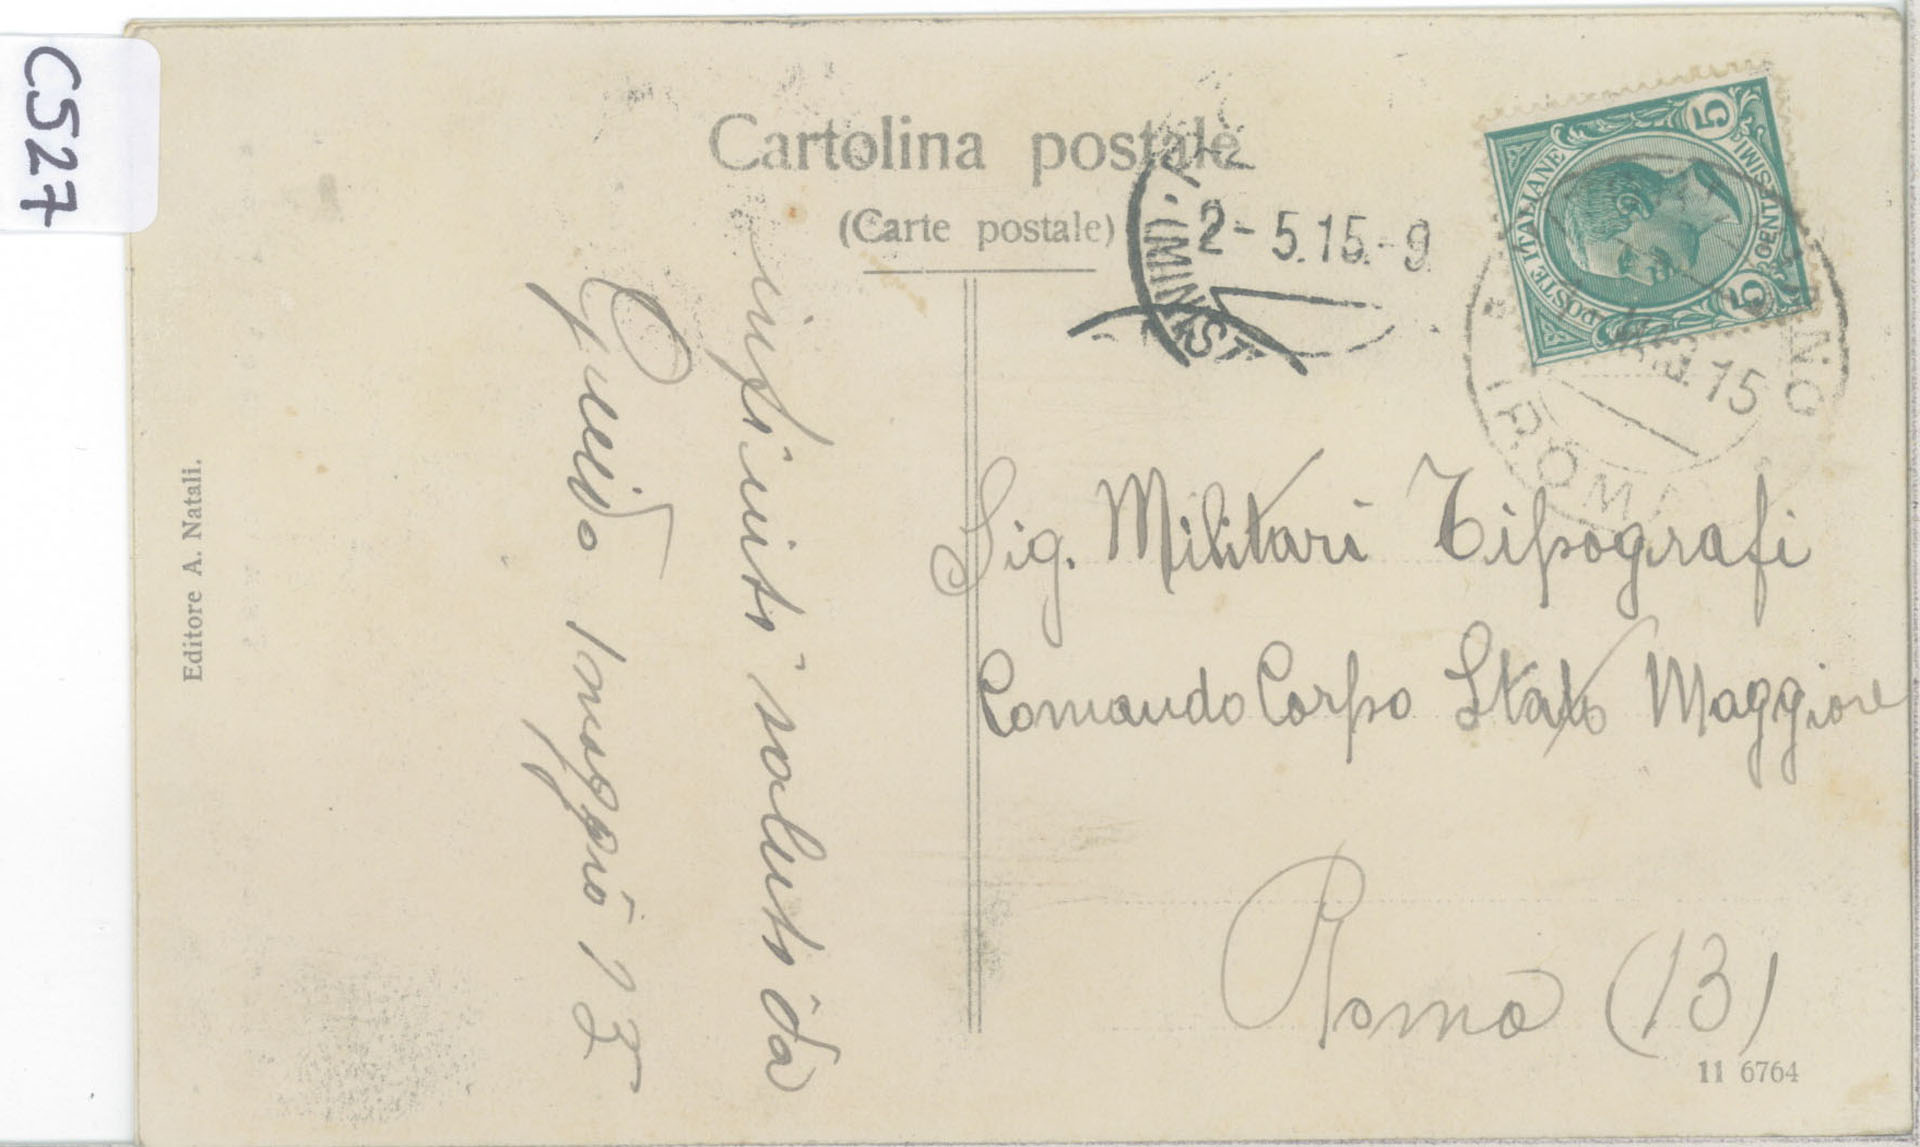 C527
Cartolina postale
(Carte postale)
POSTE ITALIANE
5 CENTESIMI 5
2-5.15.-9
(MINIST
15
(ROMA
infiniti saluti da
Guido 1 maggio 15
Sig. Militari Tipografi
Comando Corpo Stato Maggiore
Roma (13)
Editore A. Natali.
11 6764